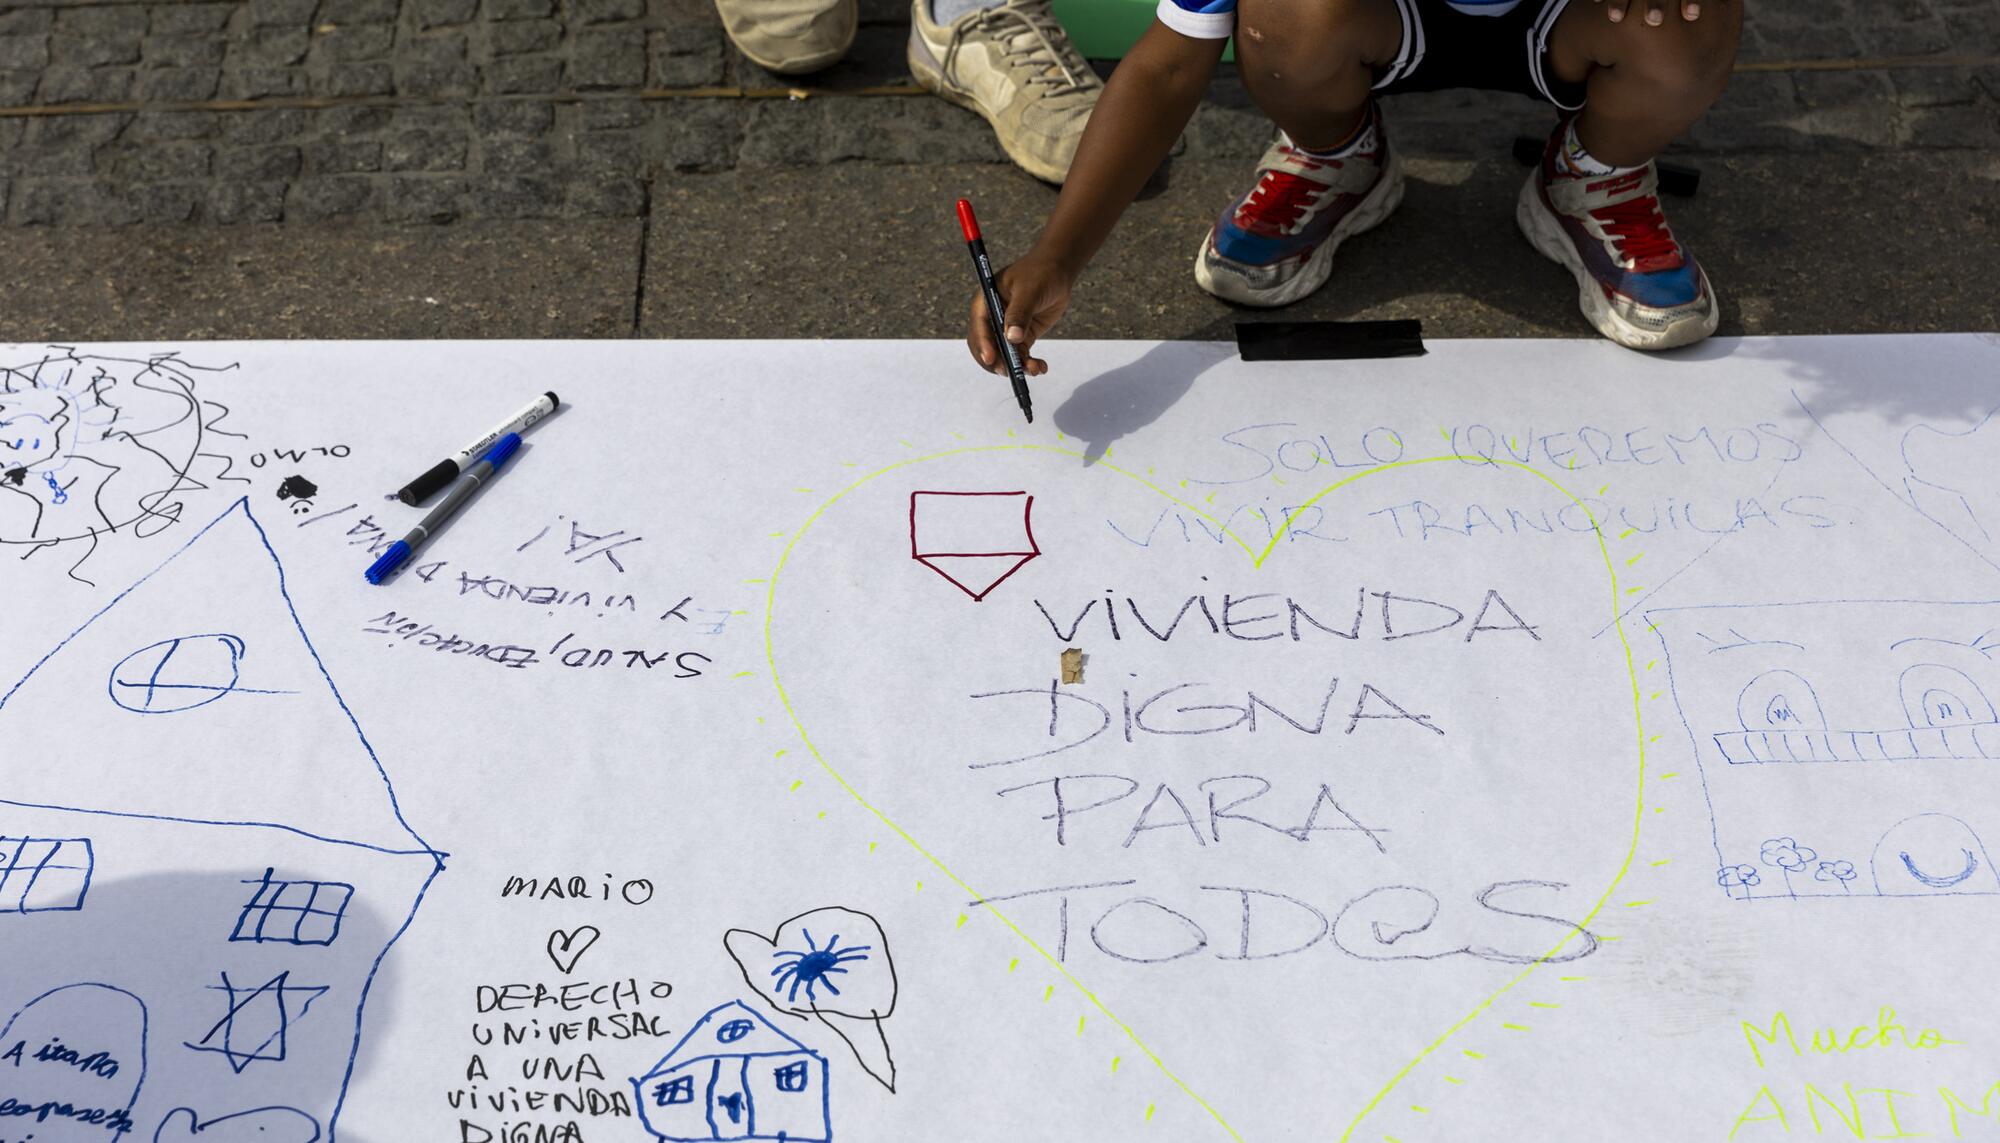 SOLO QUEREMOS
VIVIR TRANQUILAS.
VIVIENDA
DIGNA
PARA
TOD@S
OLMO
SALUD, EDUCACIÓN
Y VIVIENDA
YA!
MARIO
DERECHO
UNIVERSAL
A UNA
VIVIENDA
DIGNA
Mucho
ANIM
STAEDTLER